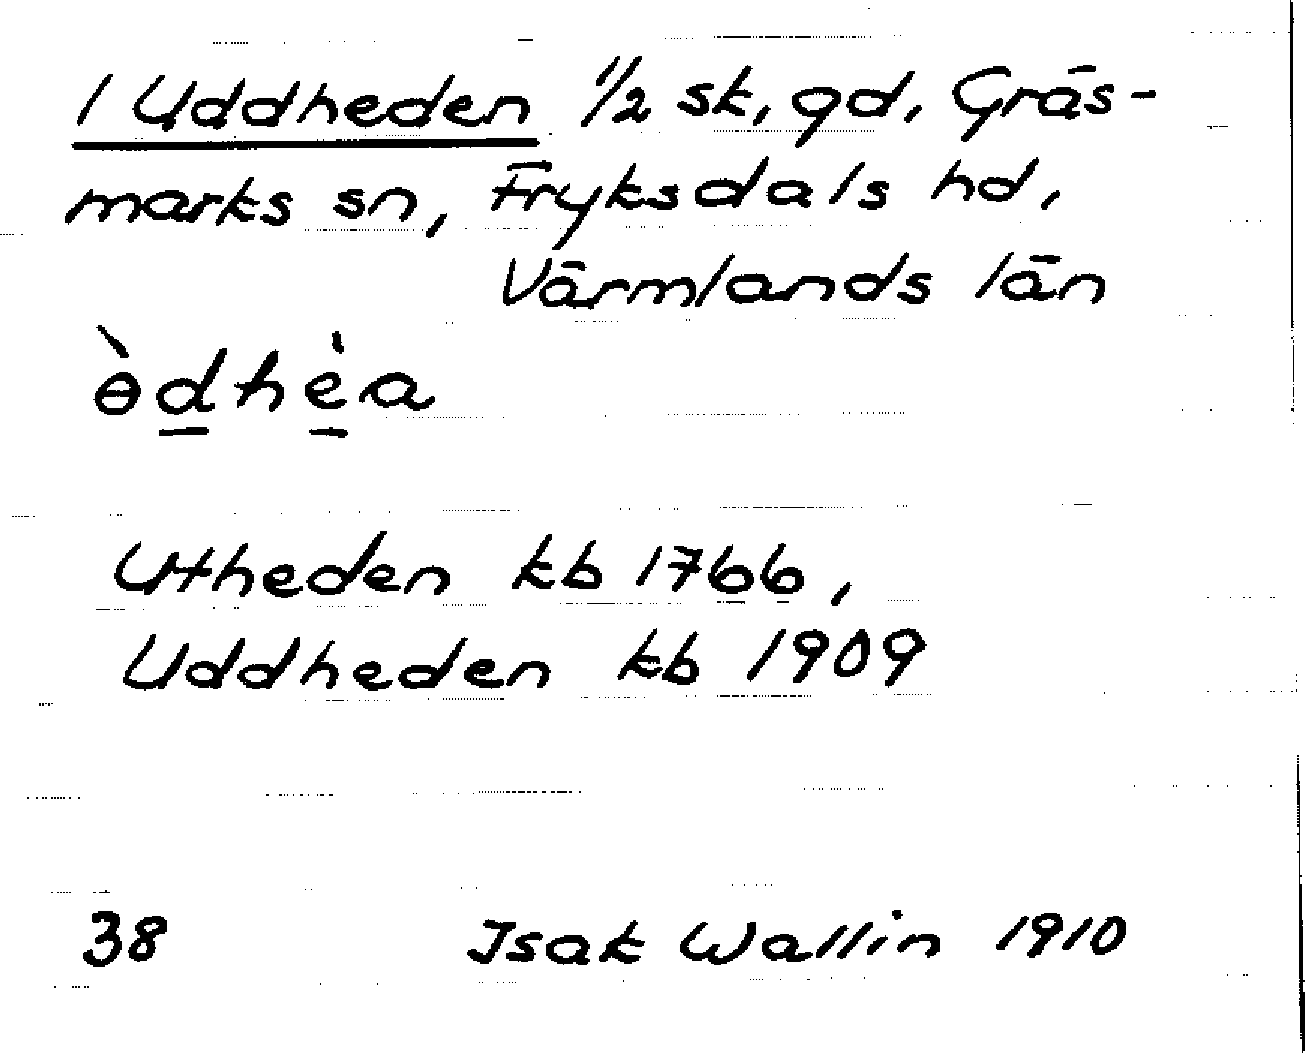 1 Uddheden 1/2 sk, gd, Gräs-
marks sn, Fryksdals hd,
Värmlands län
ɵ̀d̲hè̲a
Utheden kb 1766,
Uddheden kb 1909
38 Isak Wallin 1910